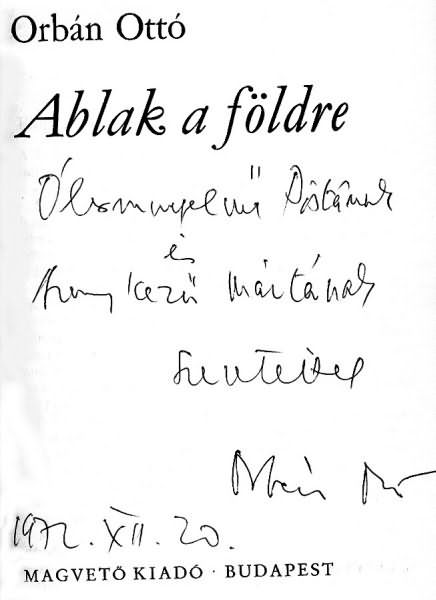 Orbán Ottó
Ablak a földre
Ólomnyelvű Pistának
és
Aranykezű Mártának
szeretettel
Orbán Ottó
1972. XII. 20.
MAGVETŐ KIADÓ · BUDAPEST